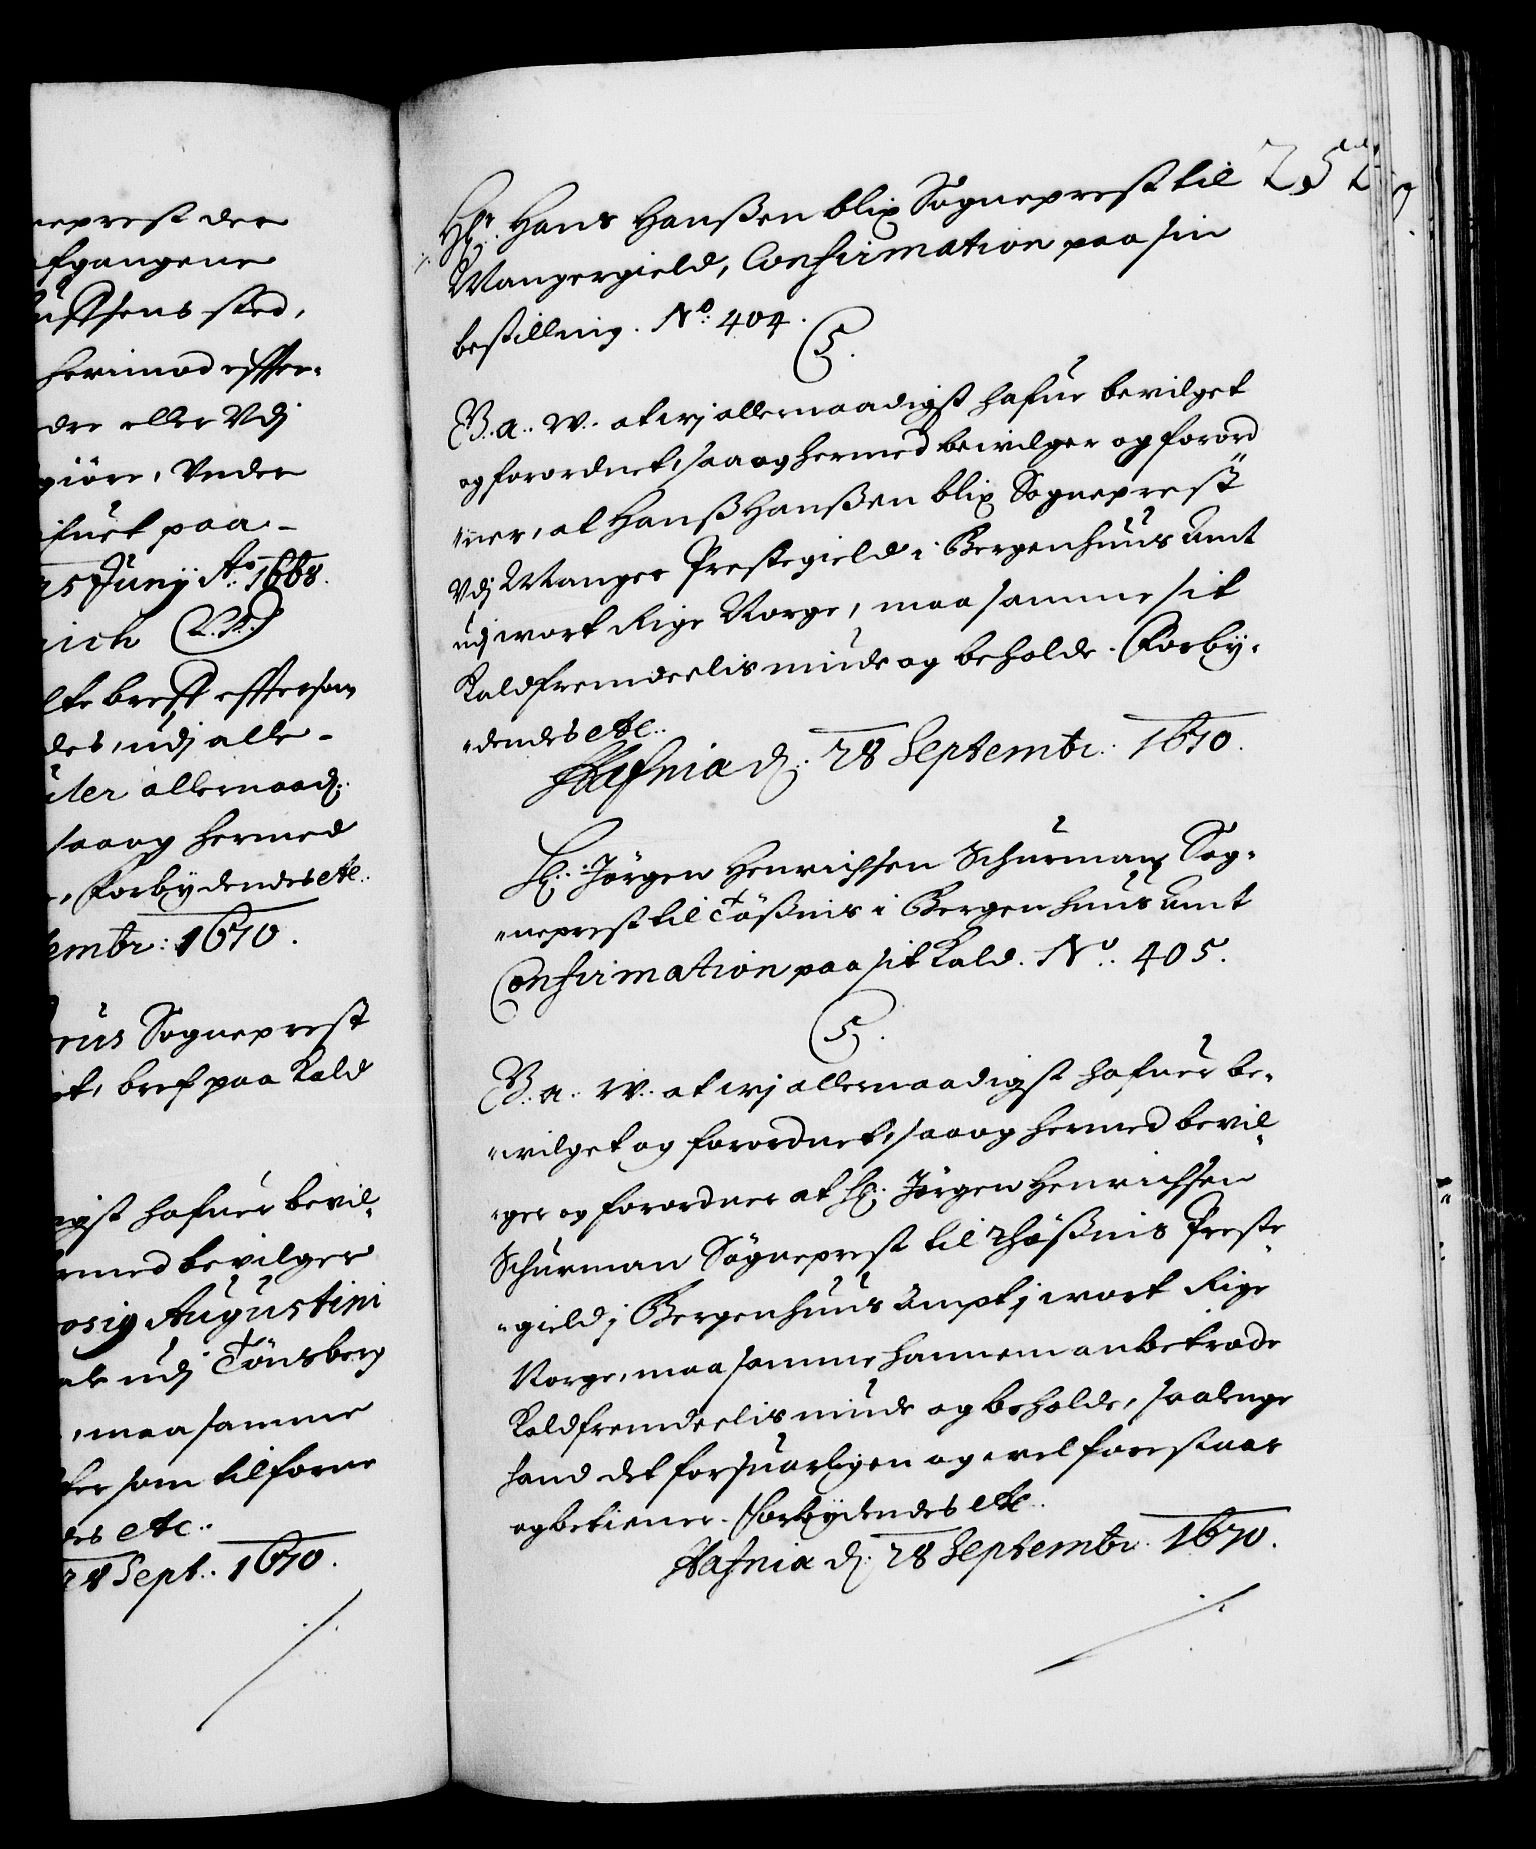 neprest der
fgangene
ußßens sted,
herimod effter-
dre eller Vdj
giöre, Under
ifuet paa -
25 Junij Ao: 1668.
rich (L.S.)
lte breff effterson
des, udj alle -
uter allernaad:
saa og hermed
, Forbydendes etc..
embr: 1670.
rus Sogneprest
it, bref paa Kald
igst hafuer bevil-
rmed bevilger
osig Augustini
ale udj Tönsberg
, maa samme
ter som tilforne
des etc..
28 Sept.. 1670.
252
Hr: Hans Hanßen blix Sogneprest til
Mangergield, Confirmation paa sin
bestilling. No: 404.
C5.
G. a.. W.. at wj allernaadigst hafuer bevilget
og forordnet, saa og hermed bewilger og forord
"ner, at Hanß Hanßen blix Sogneprest
Vdj Manger Prestegield i Bergenhuus Amt
udj wort Rige Norge, maa samme sit
Kald fremdeelis niude og beholde. Forby-
"dendes etc..
Hafnia d: 28 Septembr: 1670.
Hr: Jörgen Henrichsen Schurman, Sog-
"neprest til Tößnis i Bergenhuus Amt
Confirmation paa sit Kald. No. 405.
C5.
G. a.. W.. at wj allernaadigst hafuer be-
"wilget og forordnet, saa og hermed bevil-
"ger og forordner at Hr: Jörgen Henrichsen
Schurman Sogneprest til Thößnis Preste
"gield j Bergenhuus Ampt j wort Rige
Norge, maa samme hannem anbetrode
Kald fremdeelis niude og beholde, saalenge
hand det forsuarligen og vel forestaar
og betiener. Forbydendes etc..
Hafnia d: 28 Septembr. 1670.